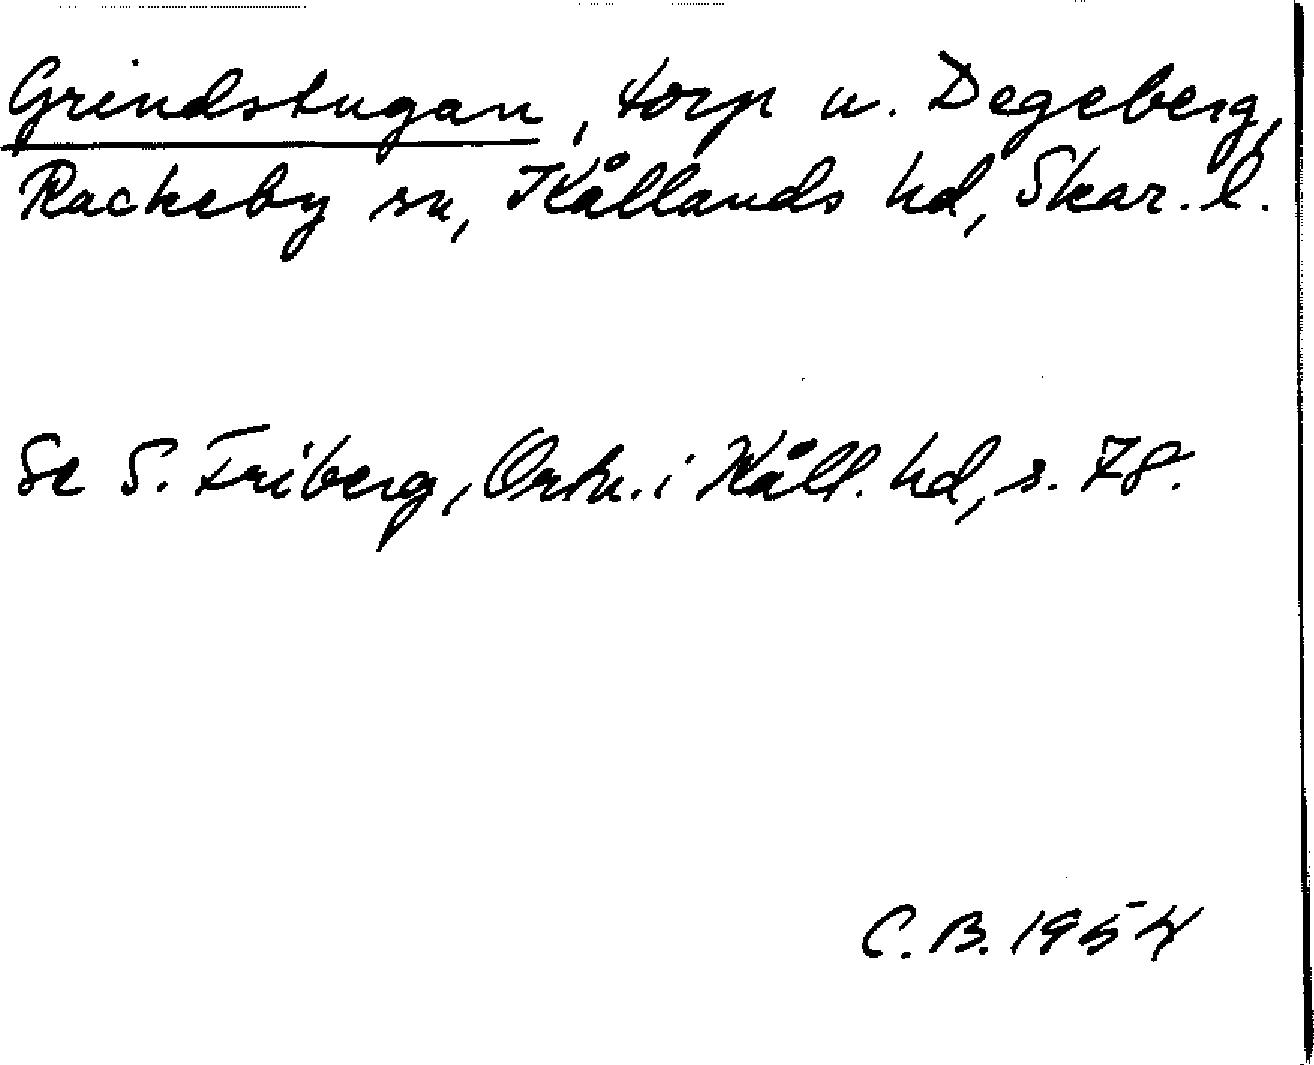 Grindstugan, torp u. Degeberg,
Rackeby sn, Kållands hd, Skar. l.
Se S. Friberg, Ortn. i Kåll. hd, s. 78.
C. B. 1954